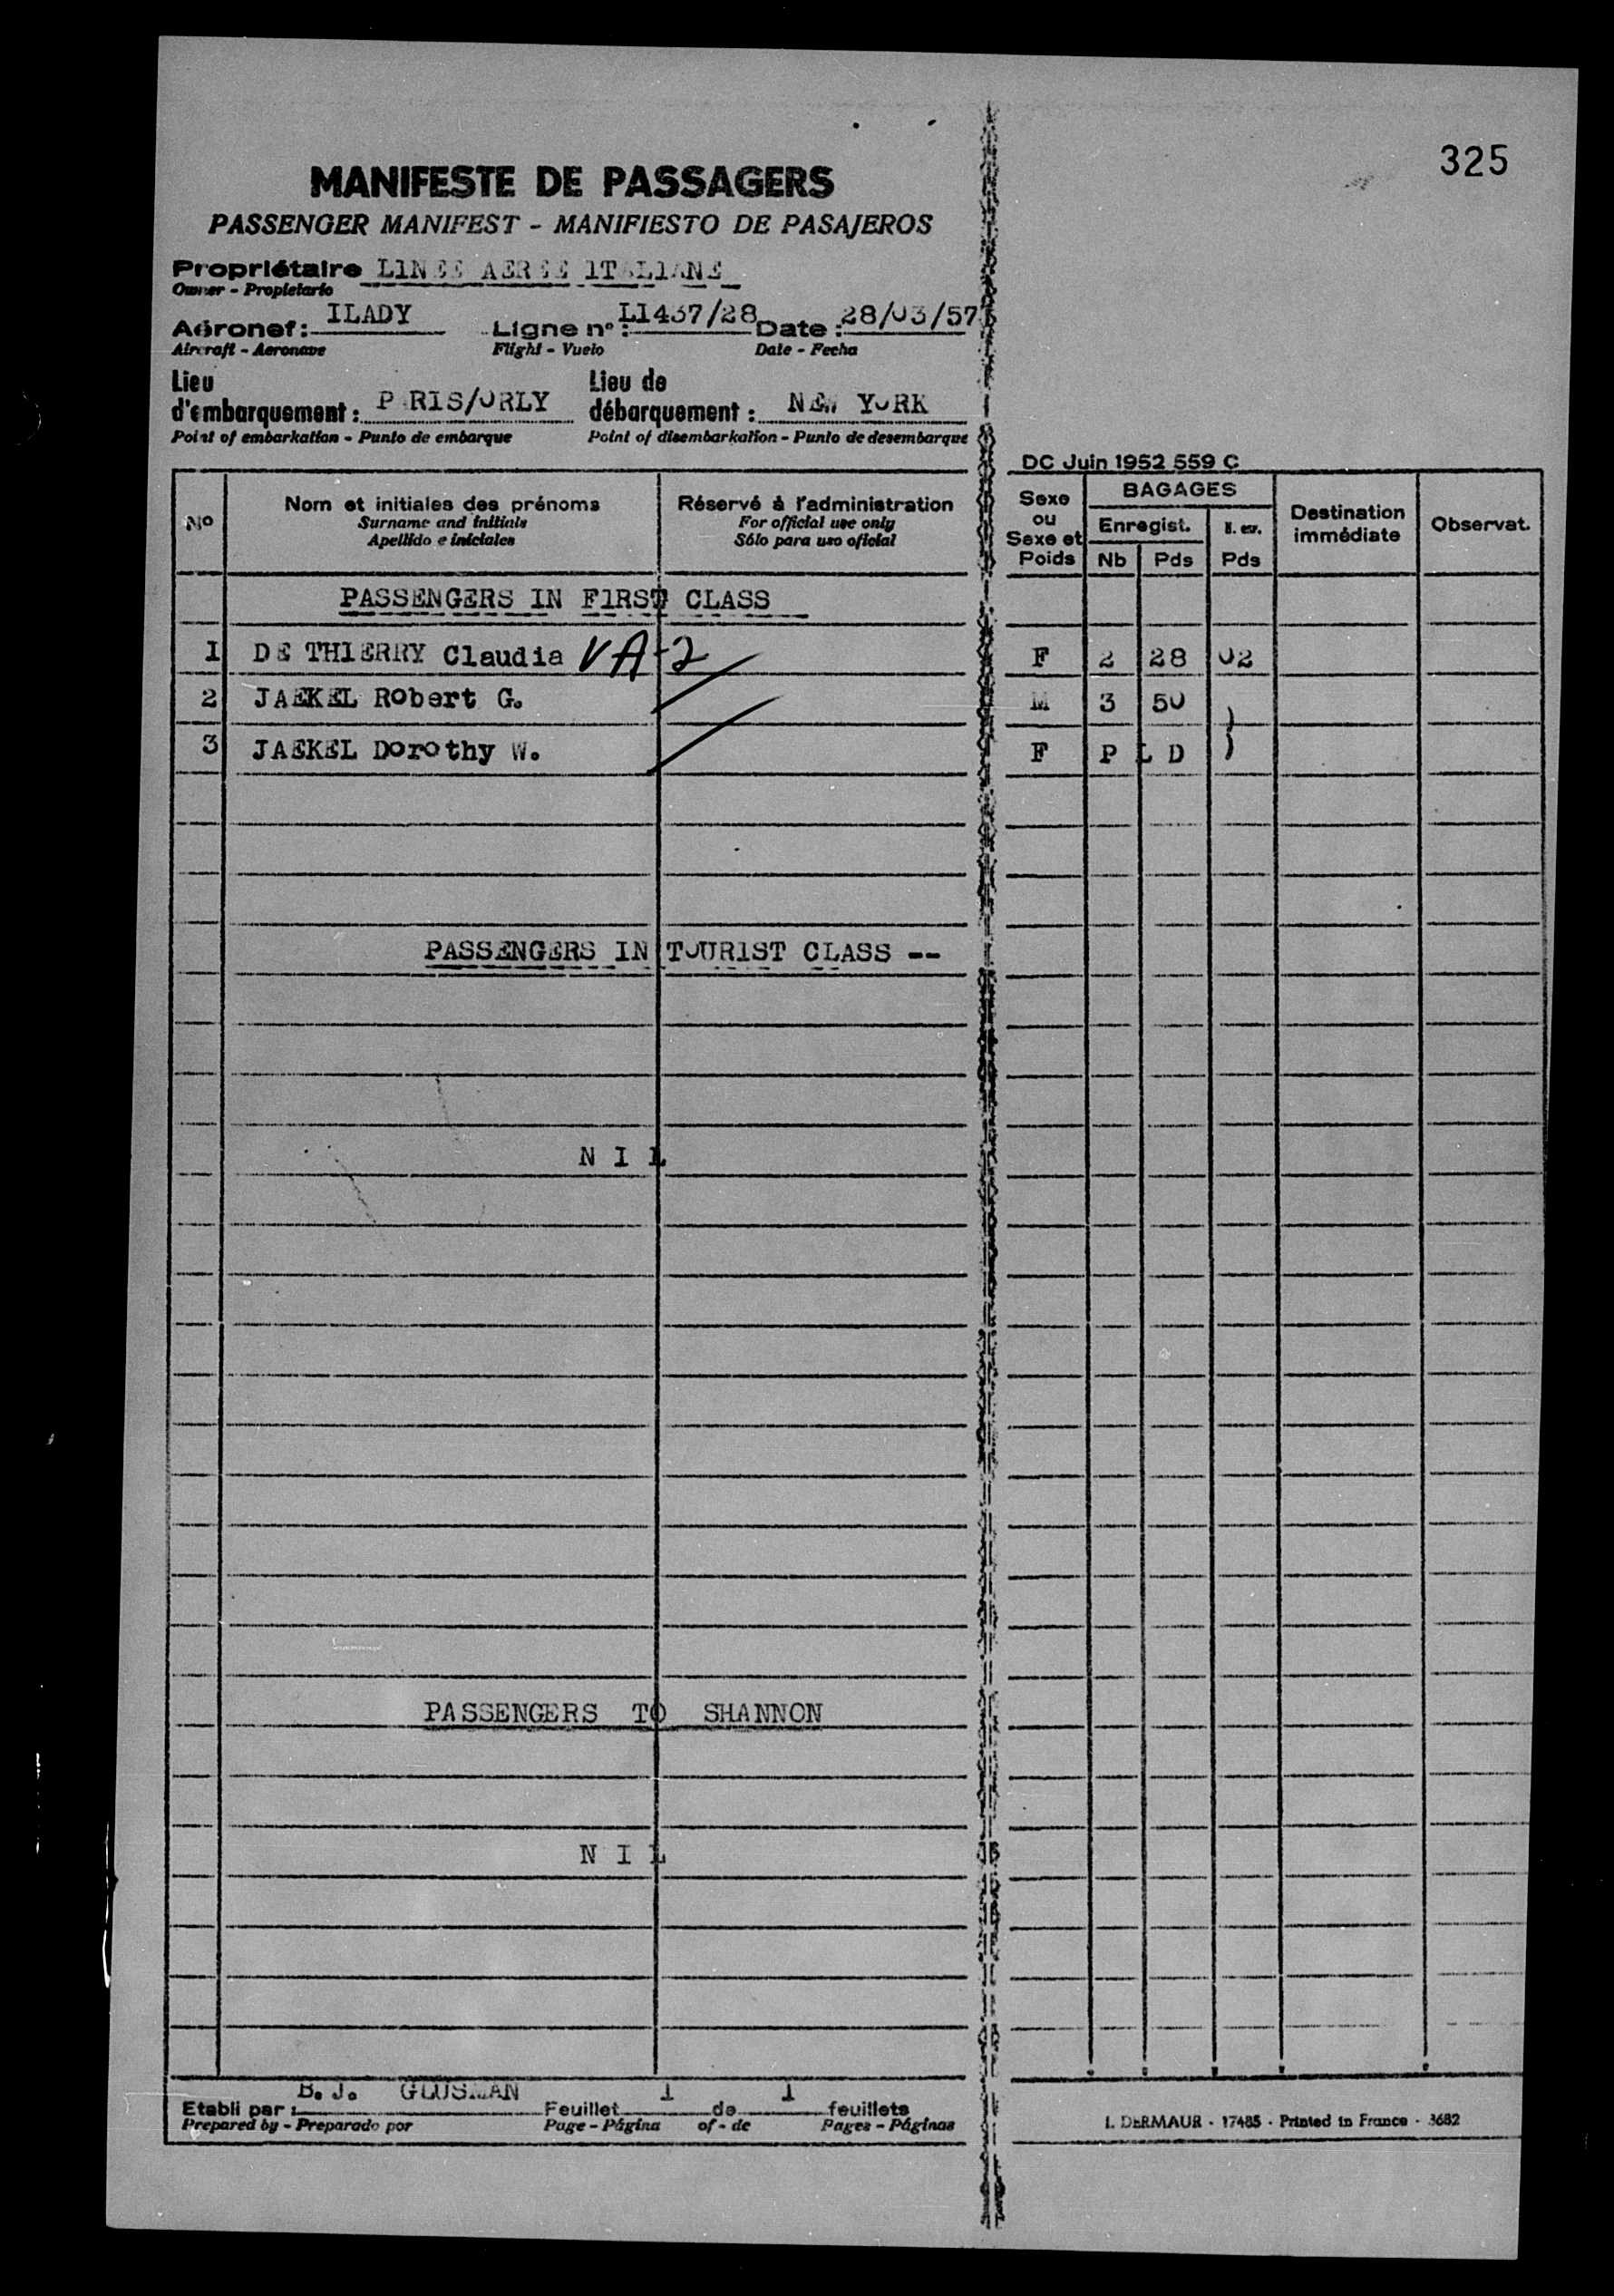 325
MANIFESTE DE PASSAGERS
PASSENGER MANIFEST - MANIFIESTO DE PASAJEROS
Propriétaire LINEE AEREE ITALIANE
Owner - Propietario
Aéronef: ILADY Ligne n°: LI437/28 Date: 28/03/57
Aircraft - Aeronave Flight - Vuelo Date - Fecha
Lieu d'embarquement: PARIS/ORLY Lieu de débarquement: NEW YORK
Point of embarkation - Punto de embarque Point of disembarkation - Punto de desembarque
DC Juin 1952 559 C
N° Nom et initiales des prénoms Réservé à l'administration Sexe ou Sexe et Poids BAGAGES Destination immédiate Observat.
Surname and initials For official use only Enregist. N. enr.
Apellido e iniciales Sólo para uso oficial Nb Pds Pds
PASSENGERS IN FIRST CLASS
1 DE THIERRY Claudia VA-2 F 2 28 02
2 JAEKEL Robert G. M 3 50
3 JAEKEL Dorothy W. F P L D
PASSENGERS IN TOURIST CLASS --
N I L
PASSENGERS TO SHANNON
N I L
Etabli par: B. J. GLUSMAN Feuillet 1 de 1 feuillets
Prepared by - Preparado por Page - Página of - de Pages - Páginas
I. DERMAUR - 17485 - Printed in France - 3682